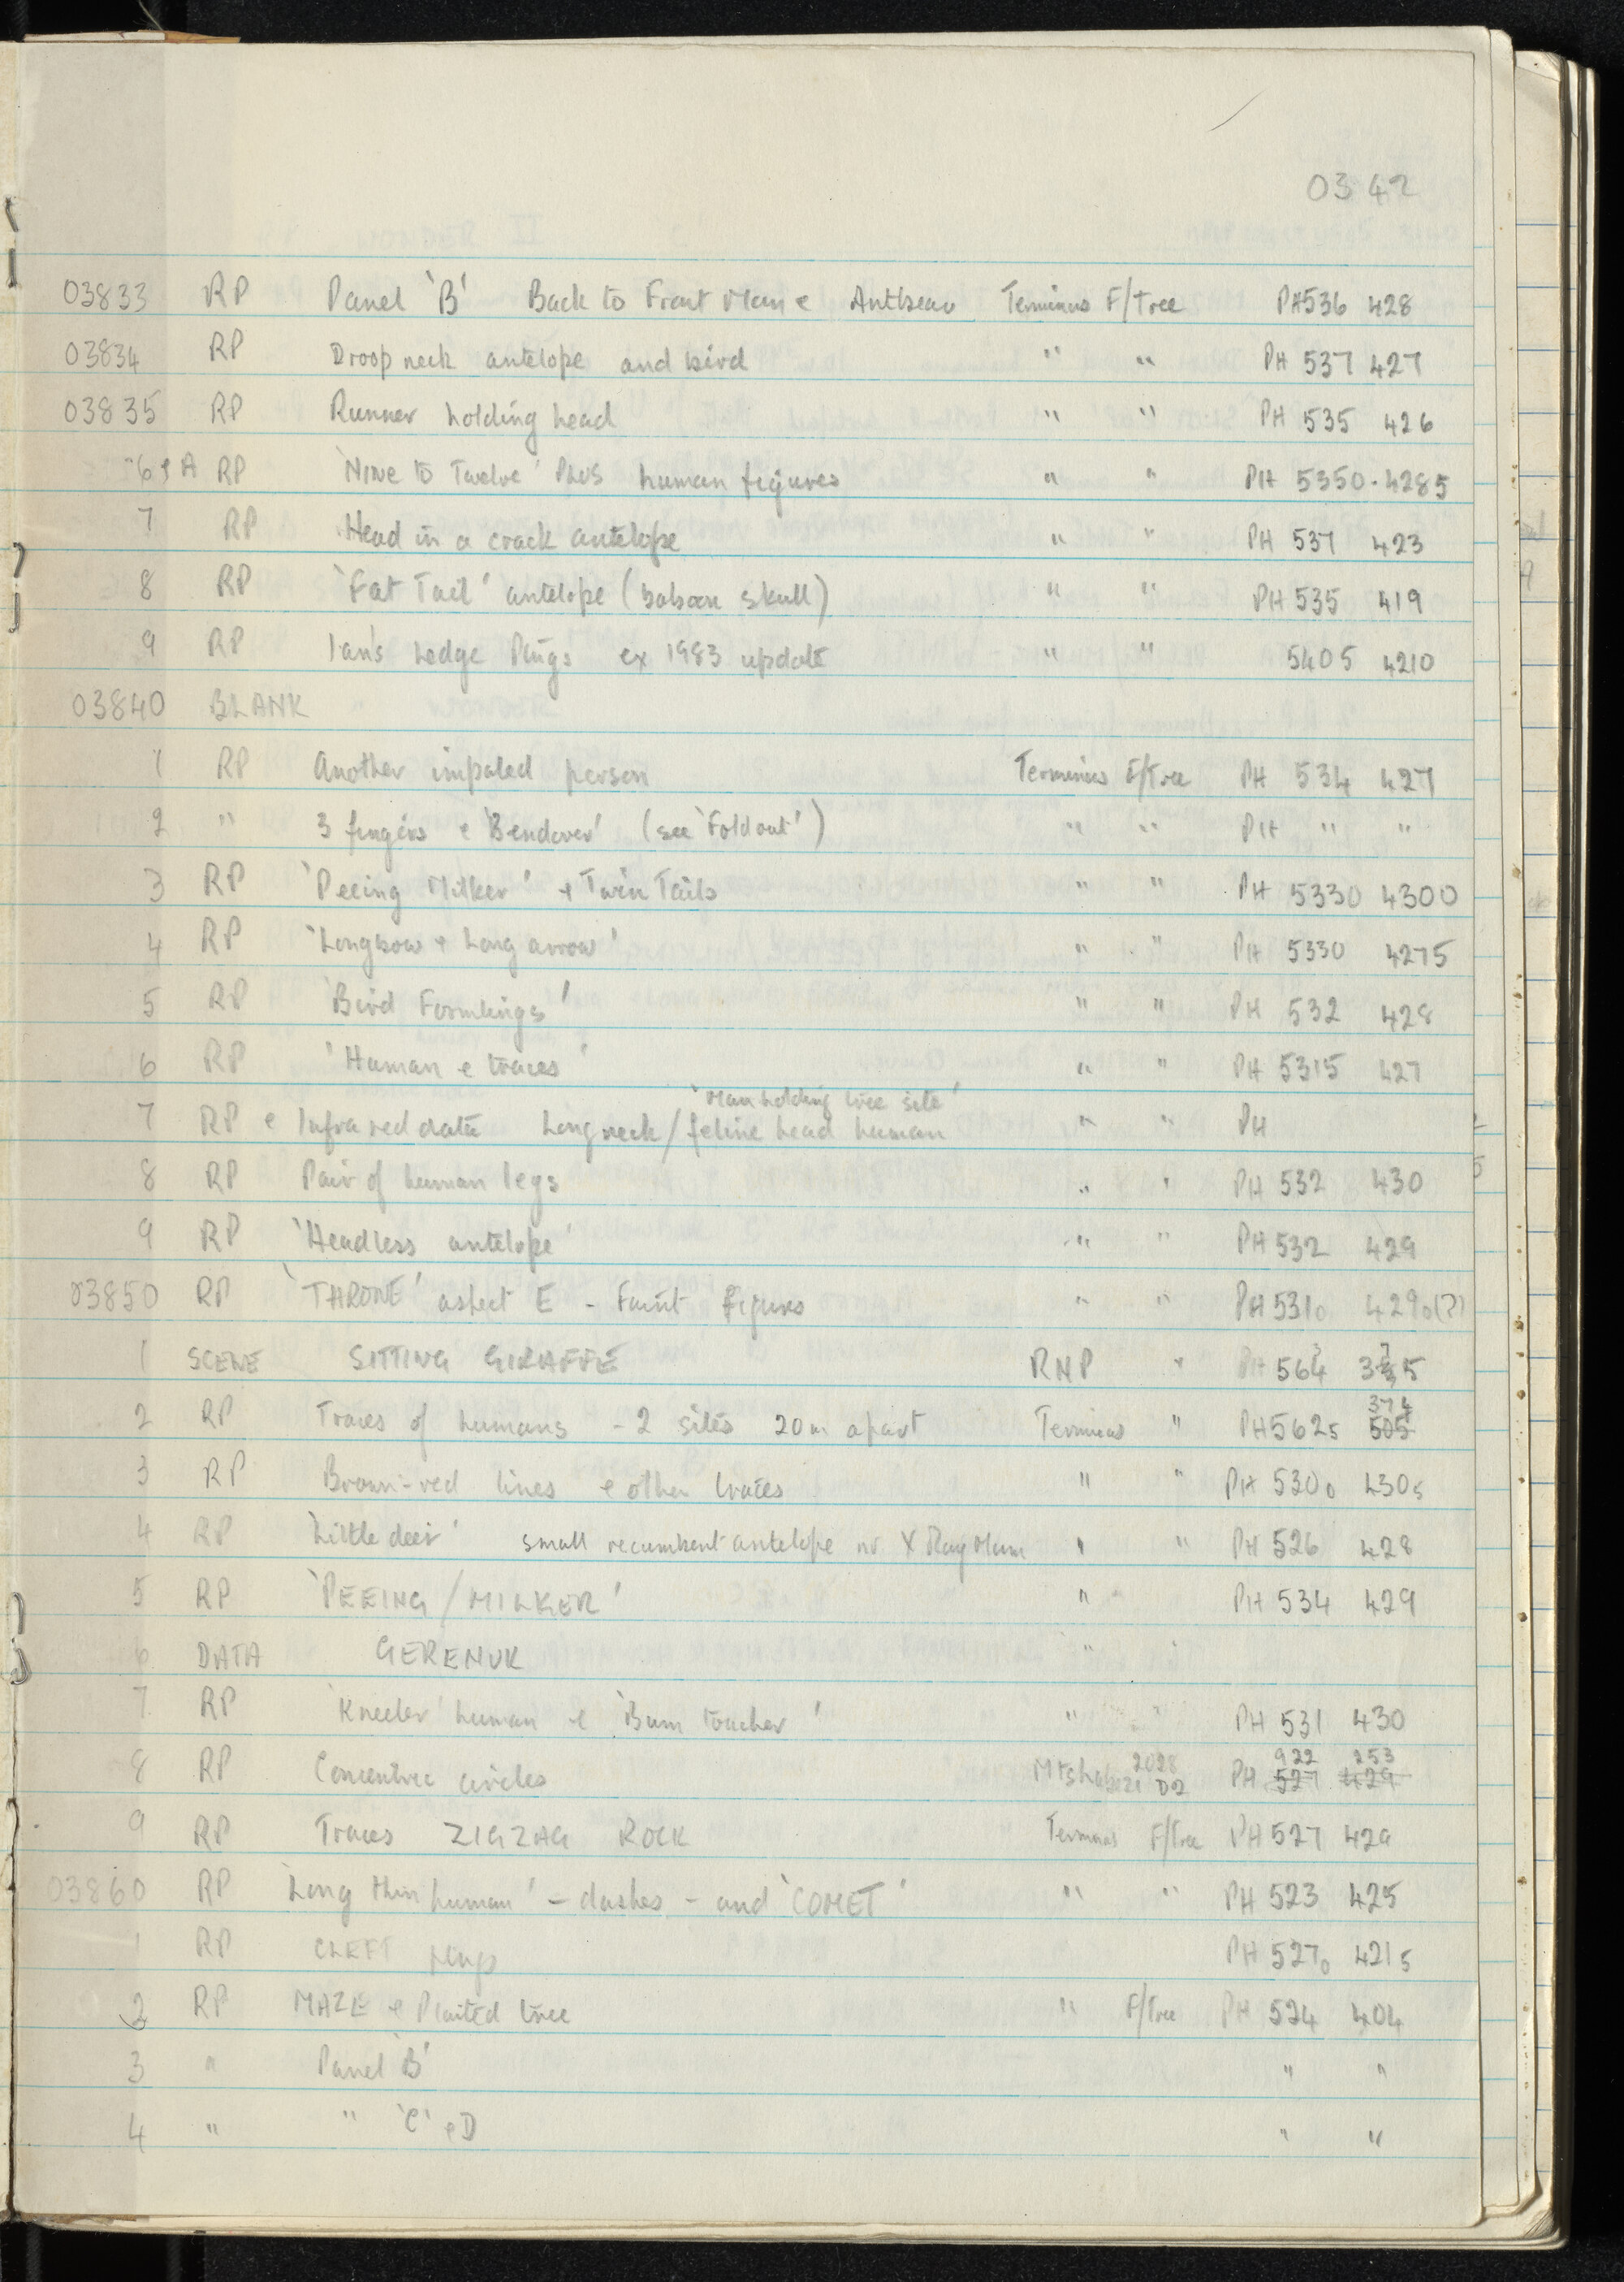 0342
03833 RP Panel 'B' Back to Front Man & Antbear Terminus F/Tree PH536 428
03834 RP Droop neck antelope and bird " " PH 537 427
03835 RP Runner holding head " " PH 535 426
6 & A RP 'Nine to Twelve' PLUS human figures " " PH 5350 - 4285
7 RP Head in a crack antelope " " PH 537 423
8 RP 'Fat Tail' antelope (baboon skull) " " PH 535 419
9 RP Ian's Ledge Ptngs ex 1983 update " " 5405 4210
03840 BLANK
1 RP Another impaled person Terminus F/Tree PH 534 427
2 " 3 fingers & 'Bendover' (see 'Foldout') " " PH " "
3 RP 'Peeing Milker' & Twin Tails " " PH 5330 4300
4 RP 'Longbow & Long arrow' " " PH 5330 4275
5 RP 'Bird Formlings' " " PH 532 428
6 RP 'Human & traces' " " PH 5315 427
'Man holding tree site'
7 RP & Infra red data Long neck/feline head human " " PH
8 RP Pair of human legs " " PH 532 430
9 RP 'Headless antelope' " " PH 532 429
03850 RP 'THRONE' aspect E - Faint figures " " PH 5310 4290(?)
1 SCENE SITTING GIRAFFE RNP " PH 564 375
2 RP Traces of humans - 2 sites 20m apart Terminus " PH 5625 374 505
3 RP Brown-red lines & other traces " " PH 5300 4305
4 RP 'Little deer' small recumbent antelope nr X Ray Mum " " PH 526 428
5 RP 'PEEING/MILKER' " " PH 534 429
6 DATA GERENUK " "
7 RP 'Kneeler' human & 'Bum toucher' " " PH 531 430
8 RP Concentric circles Mtshabezi 2028 D2 PH 922 253 527 429
9 RP Traces ZIGZAG ROCK Terminus F/Tree PH 527 429
03860 RP 'Long thin human' - dashes - and 'COMET' " " PH 523 425
1 RP CLEFT ptngs PH 5270 4215
2 RP MAZE & Plaited tree " F/Tree PH 524 404
3 " Panel 'B' " "
4 " " 'C' & D " "